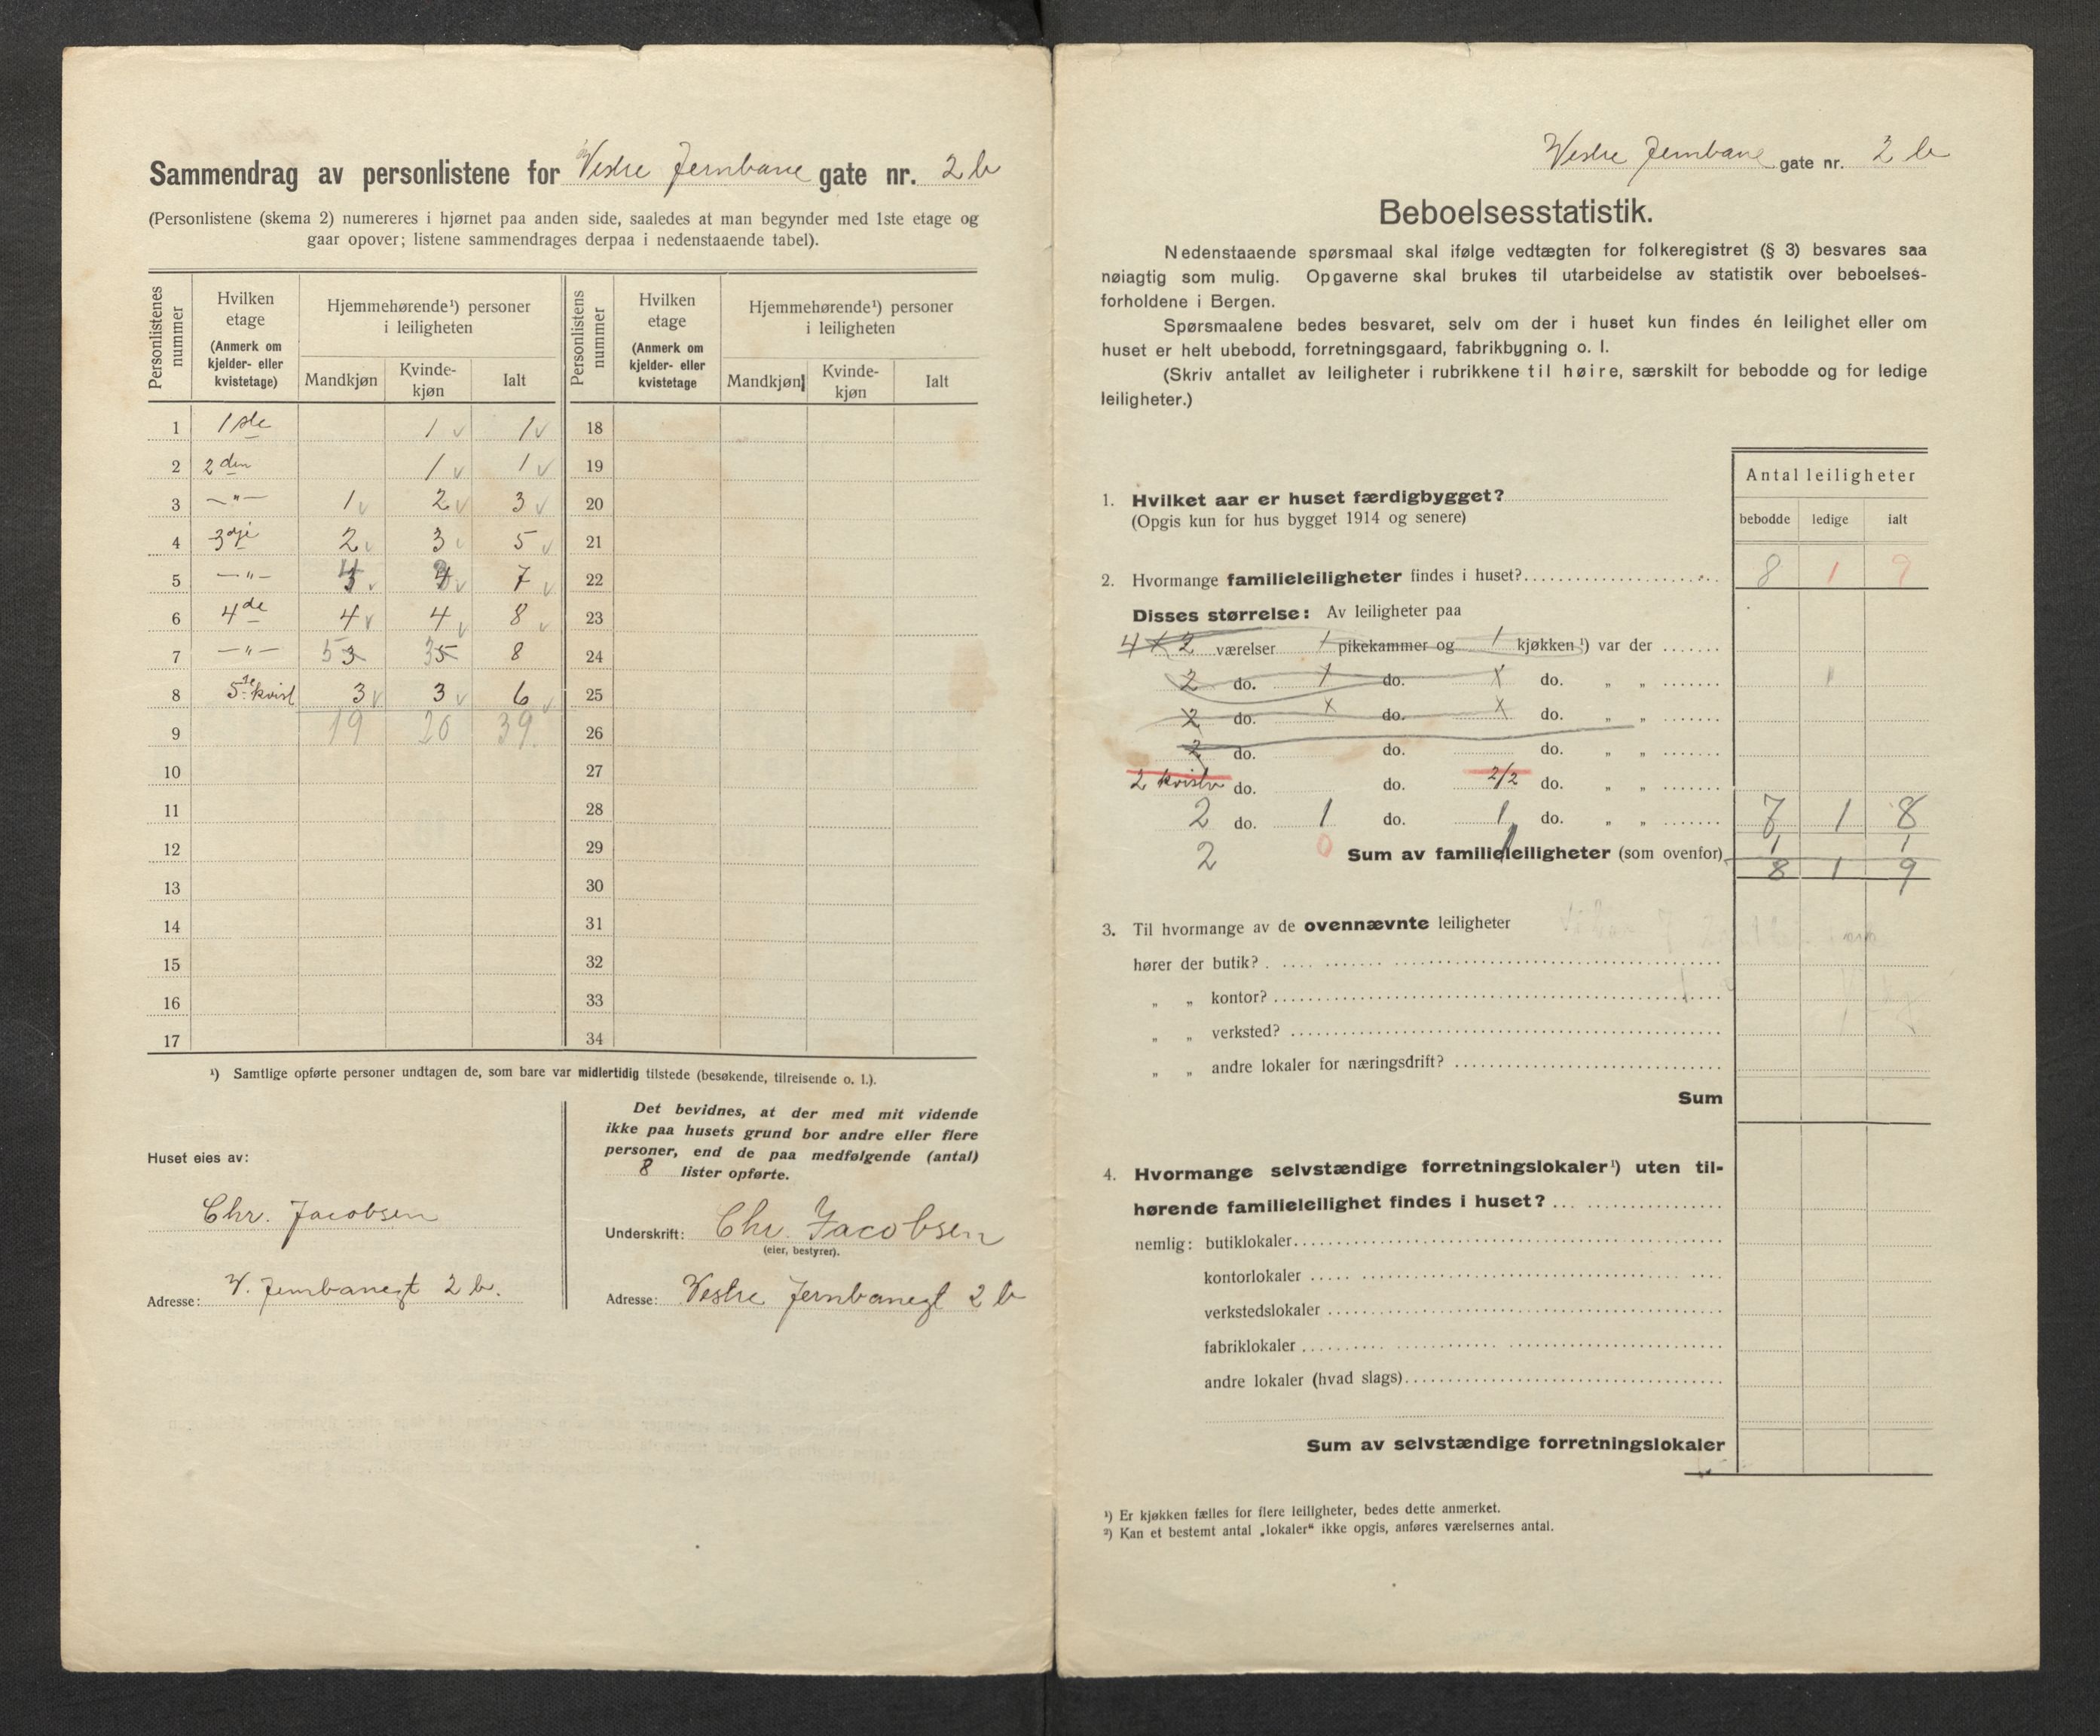 Sammendrag av personlistene for Vestre Jernbane gate nr. 2 b
(Personlistene (skema 2) numereres i hjørnet paa anden side, saaledes at man begynder med 1ste etage og
gaar opover; listene sammendrages derpaa i nedenstaaende tabel).
Personlistenes nummer
Hvilken etage (Anmerk om kjelder- eller kvistetage)
Hjemmehørende¹) personer i leiligheten
Mandkjøn Kvinde-kjøn Ialt
Personlistens nummer
Hvilken etage (Anmerk om kjelder- eller kvistetage
Hjemmehørende¹) personer i leiligheten
Mandkjøn Kvinde-kjøn Ialt
1 1ste 1 v 1 v 18
2 2den 1 v 1 v 19
3 —"— 1 v 2 v 3 v 20
4 3dje 2 v 3 v 5 v 21
5 —"— 4 v 3 v 7 v 22
6 4de 4 v 4 v 8 v 23
7 —"— 5 3 3 5 8 24
8 5te kvist 3 v 3 v 6 v 25
9 19 20 39. 26
10 27
11 28
12 29
13 30
14 31
15 32
16 33
17 34
¹) Samtlige opførte personer undtagen de, som bare var midlertidig tilstede (besøkende, tilreisende o. l.).
Huset eies av:
Chr. Jacobsen
Adresse: V. Jernbanegt 2 b.
Det bevidnes, at der med mit vidende
ikke paa husets grund bor andre eller flere
personer, end de paa medfølgende (antal)
8 lister opførte.
Underskrift: Chr. Jacobsen
(eier, bestyrer).
Adresse: Vestre Jernbanegt 2 b
Vestre Jernbane gate nr. 2 b
Beboelsesstatistik.
Nedenstaaende spørsmaal skal ifølge vedtægten for folkeregistret (§ 3) besvares saa
nøiagtig som mulig. Opgaverne skal brukes til utarbeidelse av statistik over beboelses-
forholdene i Bergen.
Spørsmaalene bedes besvaret, selv om der i huset kun findes én leilighet eller om
huset er helt ubebodd, forretningsgaard, fabrikbygning o. l.
(Skriv antallet av leiligheter i rubrikkene til høire, særskilt for bebodde og for ledige
leiligheter.)
Antal leiligheter
bebodde ledige ialt
1. Hvilket aar er huset færdigbygget?
(Opgis kun for hus bygget 1914 og senere)
2. Hvormange familieleiligheter findes i huset? 8 1 9
Disses størrelse: Av leiligheter paa
4 x 2 værelser 1 pikekammer og 1 kjøkken¹) var der
2 do. 1 do. x do. „ „
2 do. x do. x do. „ „
2 do. do. do. „ „
2 kvistv do. do. 2/2 do. „ „
2 do. 1 do. 1 do. „ „ 7 1 8
2 0 1 1 1
Sum av familieleiligheter (som ovenfor) 8 1 9
3. Til hvormange av de ovennævnte leiligheter
hører der butik?
„ „ kontor?
„ „ verksted?
„ „ andre lokaler for næringsdrift?
Sum
4. Hvormange selvstændige forretningslokaler¹) uten til-
hørende familieleilighet findes i huset?
nemlig: butiklokaler
kontorlokaler
verkstedslokaler
fabriklokaler
andre lokaler (hvad slags)
Sum av selvstændige forretningslokaler
¹) Er kjøkken fælles for flere leiligheter, bedes dette anmerket.
²) Kan et bestemt antal „lokaler“ ikke opgis, anføres værelsernes antal.